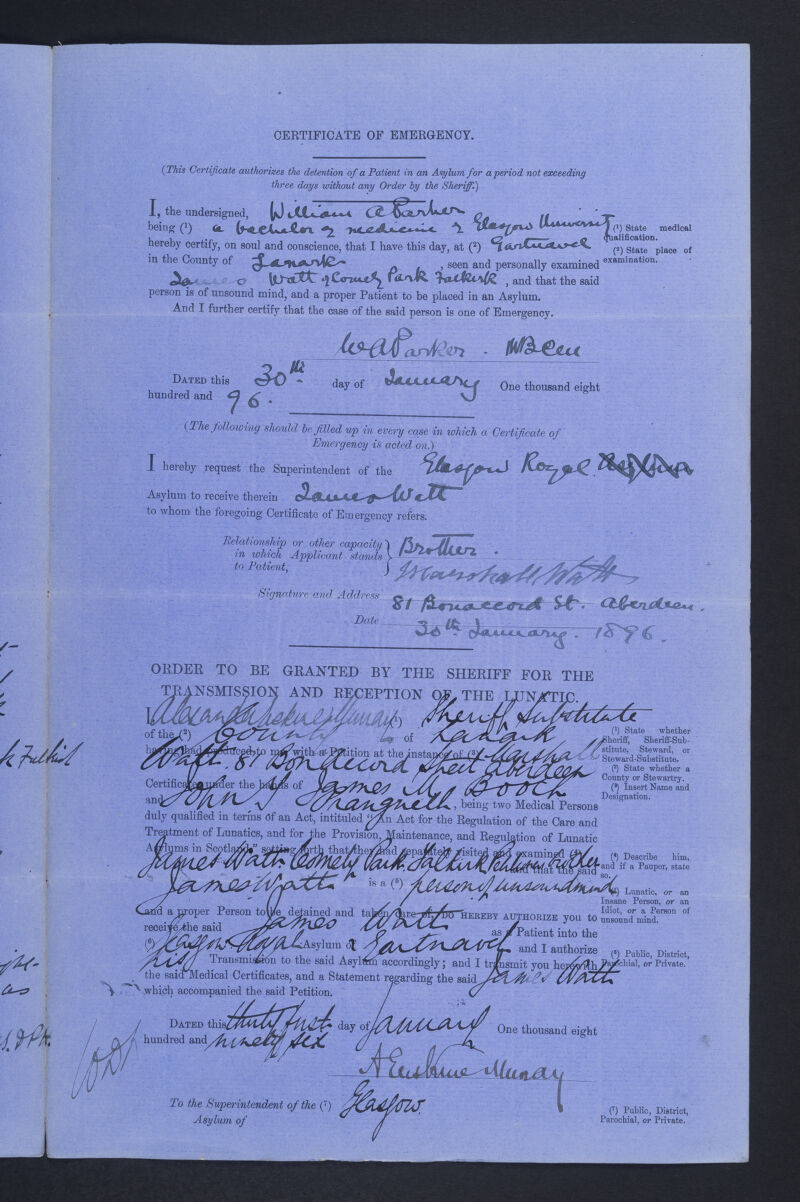 CERTIFICATE OF EMERGENCY.
(This Certificate authorizes the detention of a Patient in an Asylum for a period not exceeding
three days without any Order by the Sheriff.)
I, the undersigned, William A Parker
being (1) a bachelor of medicine of Glasgow University
(1) State medical
qualification.
hereby certify, on soul and conscience, that I have this day, at (2) Gartnavel
(2) State place of
examination.
in the County of Lanark, seen and personally examined
James Watt of Comely Park Falkirk, and that the said
person is of unsound mind, and a proper Patient to be placed in an Asylum.
And I further certify that the case of the said person is one of Emergency.
W A Parker.
DATED this 30th day of January One thousand eight
hundred and 96.
(The following should be filled up in every case in which a Certificate of
Emergency is acted on.)
I hereby request the Superintendent of the Glasgow Royal Asylum
Asylum to receive therein James Watt
to whom the foregoing Certificate of Emergency refers.
Relationship or other capacity
in which Applicant stands
to Patient,
Brother.
Marshall Watt
Signature and Address
81 Bonaccord St. Aberdeen.
Date 30th January. 1896.
ORDER TO BE GRANTED BY THE SHERIFF FOR THE
TRANSMISSION AND RECEPTION OF THE LUNATIC.
I Alexander Erskine Murray (1) Sheriff Substitute
(1) State whether
Sheriff, Sheriff-Sub-
stitute, Steward, or
Steward-Substitute.
of the (2) County of Lanark
(2) State whether a
County or Stewartry.
having had produced to me, with a Petition at the instance of (3) Marshall
(3) Insert Name and
Designation.
Watt 81 Bonaccord Street Aberdeen
Certificates under the hands of James M. Booth
and John S, being two Medical Persons
duly qualified in terms of an Act, intituled "An Act for the Regulation of the Care and
Treatment of Lunatics, and for the Provision, Maintenance, and Regulation of Lunatic
Asylums in Scotland," setting forth that they had separately visited and examined (4)
(4) Describe him,
and if a Pauper, state
so.
James Watt Comely Park Falkirk
and that the said
James Watt is a (5) person of unsound mind
(5) Lunatic, or an
Insane Person, or an
Idiot, or a Person of
unsound mind.
and a proper Person to be detained and taken care of, DO HEREBY AUTHORIZE you to
receive the said James Watt as a Patient into the
(6) Glasgow Royal Asylum of Gartnavel and I authorize
(6) Public, District,
Parochial, or Private.
his Transmission to the said Asylum accordingly; and I transmit you herewith
the said Medical Certificates, and a Statement regarding the said James Watt
which accompanied the said Petition.
DATED this thirty first day of January One thousand eight
hundred and ninety six
A Erskine Murray
To the Superintendent of the (7) Glasgow
Asylum of
(7) Public, District,
Parochial, or Private.